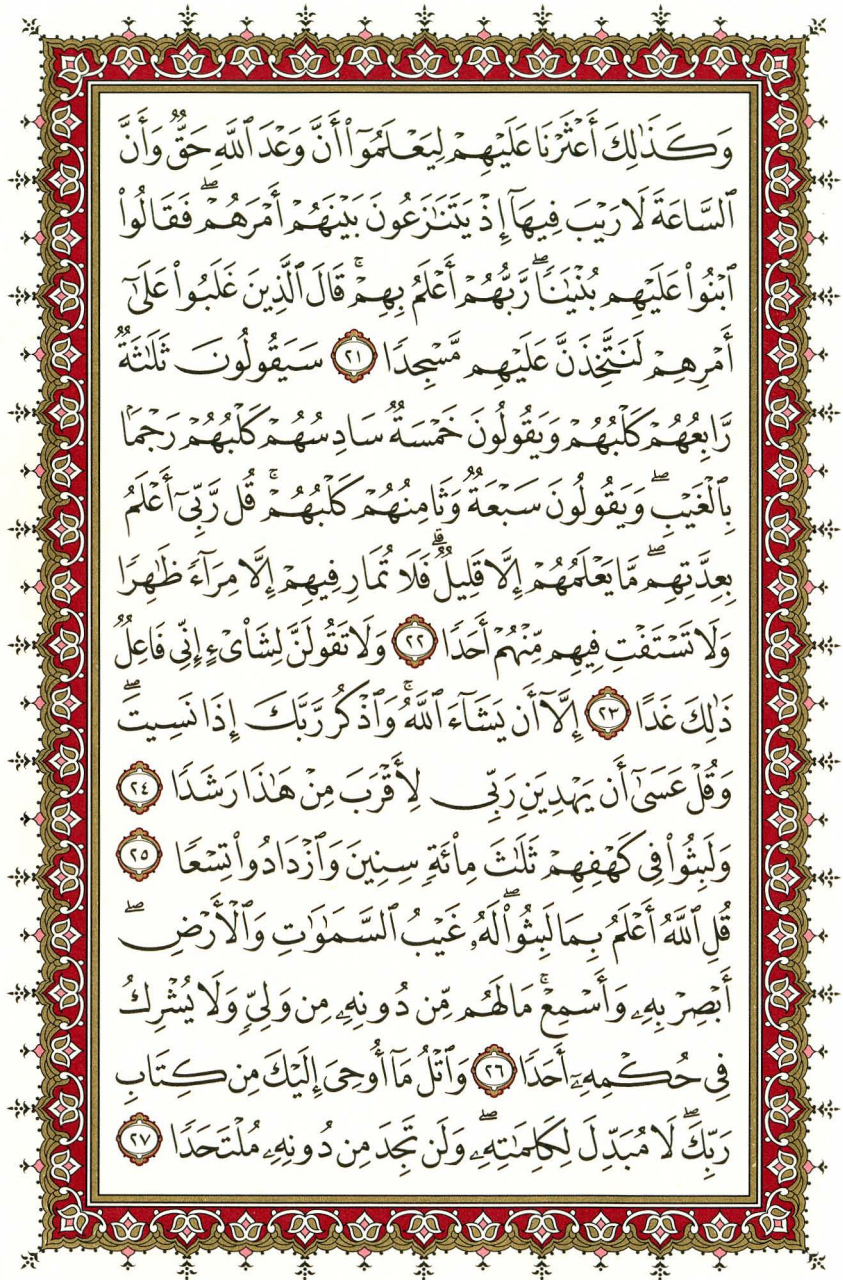 وَكَذَٰلِكَ أَعْثَرْنَا عَلَيْهِمْ لِيَعْلَمُوٓا۟ أَنَّ وَعْدَ ٱللَّهِ حَقٌّ وَأَنَّ
ٱلسَّاعَةَ لَا رَيْبَ فِيهَآ إِذْ يَتَنَٰزَعُونَ بَيْنَهُمْ أَمْرَهُمْ ۖ فَقَالُوا۟
ٱبْنُوا۟ عَلَيْهِم بُنْيَٰنًا ۖ رَّبُّهُمْ أَعْلَمُ بِهِمْ ۚ قَالَ ٱلَّذِينَ غَلَبُوا۟ عَلَىٰٓ
أَمْرِهِمْ لَنَتَّخِذَنَّ عَلَيْهِم مَّسْجِدًا ٢١ سَيَقُولُونَ ثَلَٰثَةٌ
رَّابِعُهُمْ كَلْبُهُمْ وَيَقُولُونَ خَمْسَةٌ سَادِسُهُمْ كَلْبُهُمْ رَجْمًۢا
بِٱلْغَيْبِ ۖ وَيَقُولُونَ سَبْعَةٌ وَثَامِنُهُمْ كَلْبُهُمْ ۚ قُل رَّبِّىٓ أَعْلَمُ
بِعِدَّتِهِم ۖ مَّا يَعْلَمُهُمْ إِلَّا قَلِيلٌ ۗ فَلَا تُمَارِ فِيهِمْ إِلَّا مِرَآءً ظَٰهِرًا
وَلَا تَسْتَفْتِ فِيهِم مِّنْهُمْ أَحَدًا ٢٢ وَلَا تَقُولَنَّ لِشَا۟ىْءٍ إِنِّى فَاعِلٌ
ذَٰلِكَ غَدًا ٢٣ إِلَّآ أَن يَشَآءَ ٱللَّهُ ۚ وَٱذْكُر رَّبَّكَ إِذَا نَسِيتَ ۖ
وَقُلْ عَسَىٰٓ أَن يَهْدِيَنِ رَبِّى لِأَقْرَبَ مِنْ هَٰذَا رَشَدًا ٢٤
وَلَبِثُوا۟ فِى كَهْفِهِمْ ثَلَٰثَ مِا۟ئَةٍ سِنِينَ وَٱزْدَادُوا۟ تِسْعًا ٢٥
قُلِ ٱللَّهُ أَعْلَمُ بِمَا لَبِثُوا۟ ۖ لَهُۥ غَيْبُ ٱلسَّمَٰوَٰتِ وَٱلْأَرْضِ ۖ
أَبْصِرْ بِهِۦ وَأَسْمِعْ ۚ مَا لَهُم مِّن دُونِهِۦ مِن وَلِىٍّ وَلَا يُشْرِكُ
فِى حُكْمِهِۦٓ أَحَدًا ٢٦ وَٱتْلُ مَآ أُوحِىَ إِلَيْكَ مِن كِتَابِ
رَبِّكَ ۖ لَا مُبَدِّلَ لِكَلِمَٰتِهِۦ ۖ وَلَن تَجِدَ مِن دُونِهِۦ مُلْتَحَدًا ٢٧